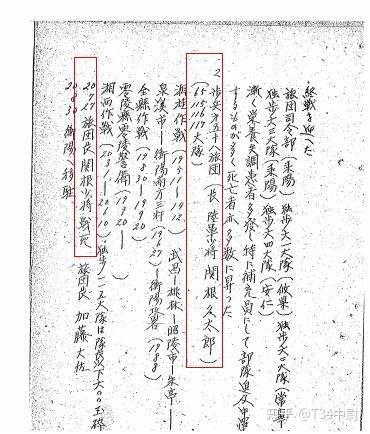 終戦を迎へた
旅団司令部(耒陽) 独歩六一大隊(攸県) 独歩六二大隊(常寧
独歩六三大隊(耒陽) 独歩六四大隊(安仁)
漸く栄養失調患者多発し特に補充員にして部隊追及中
するもの多く死亡者亦多数に昇った
2. 歩兵第五十八旅団(長 陸軍少将 関根久太郎)
(115 116 117大隊)
湘桂作戦(19.5.11–19.12.) 武昌–桃林–昭陵市–朱亭–
泉溪市–衡陽南方三粁(19.6.27)–衡陽攻略(19.8.8)
全縣作戦(19.8.30–19.9.20)
零陵縣零陵警備(19.9.20–)
湘西作戦(20.3.1–20.6.10) 独歩一一五大隊は隊長以下六〇〇玉砕
20.7.27 旅団長関根少将戦死 旅団長 加藤大佐
20.8.30 衡陽へ移駐
知乎 @T34中尉